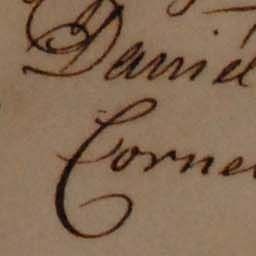 Daniel
Corne